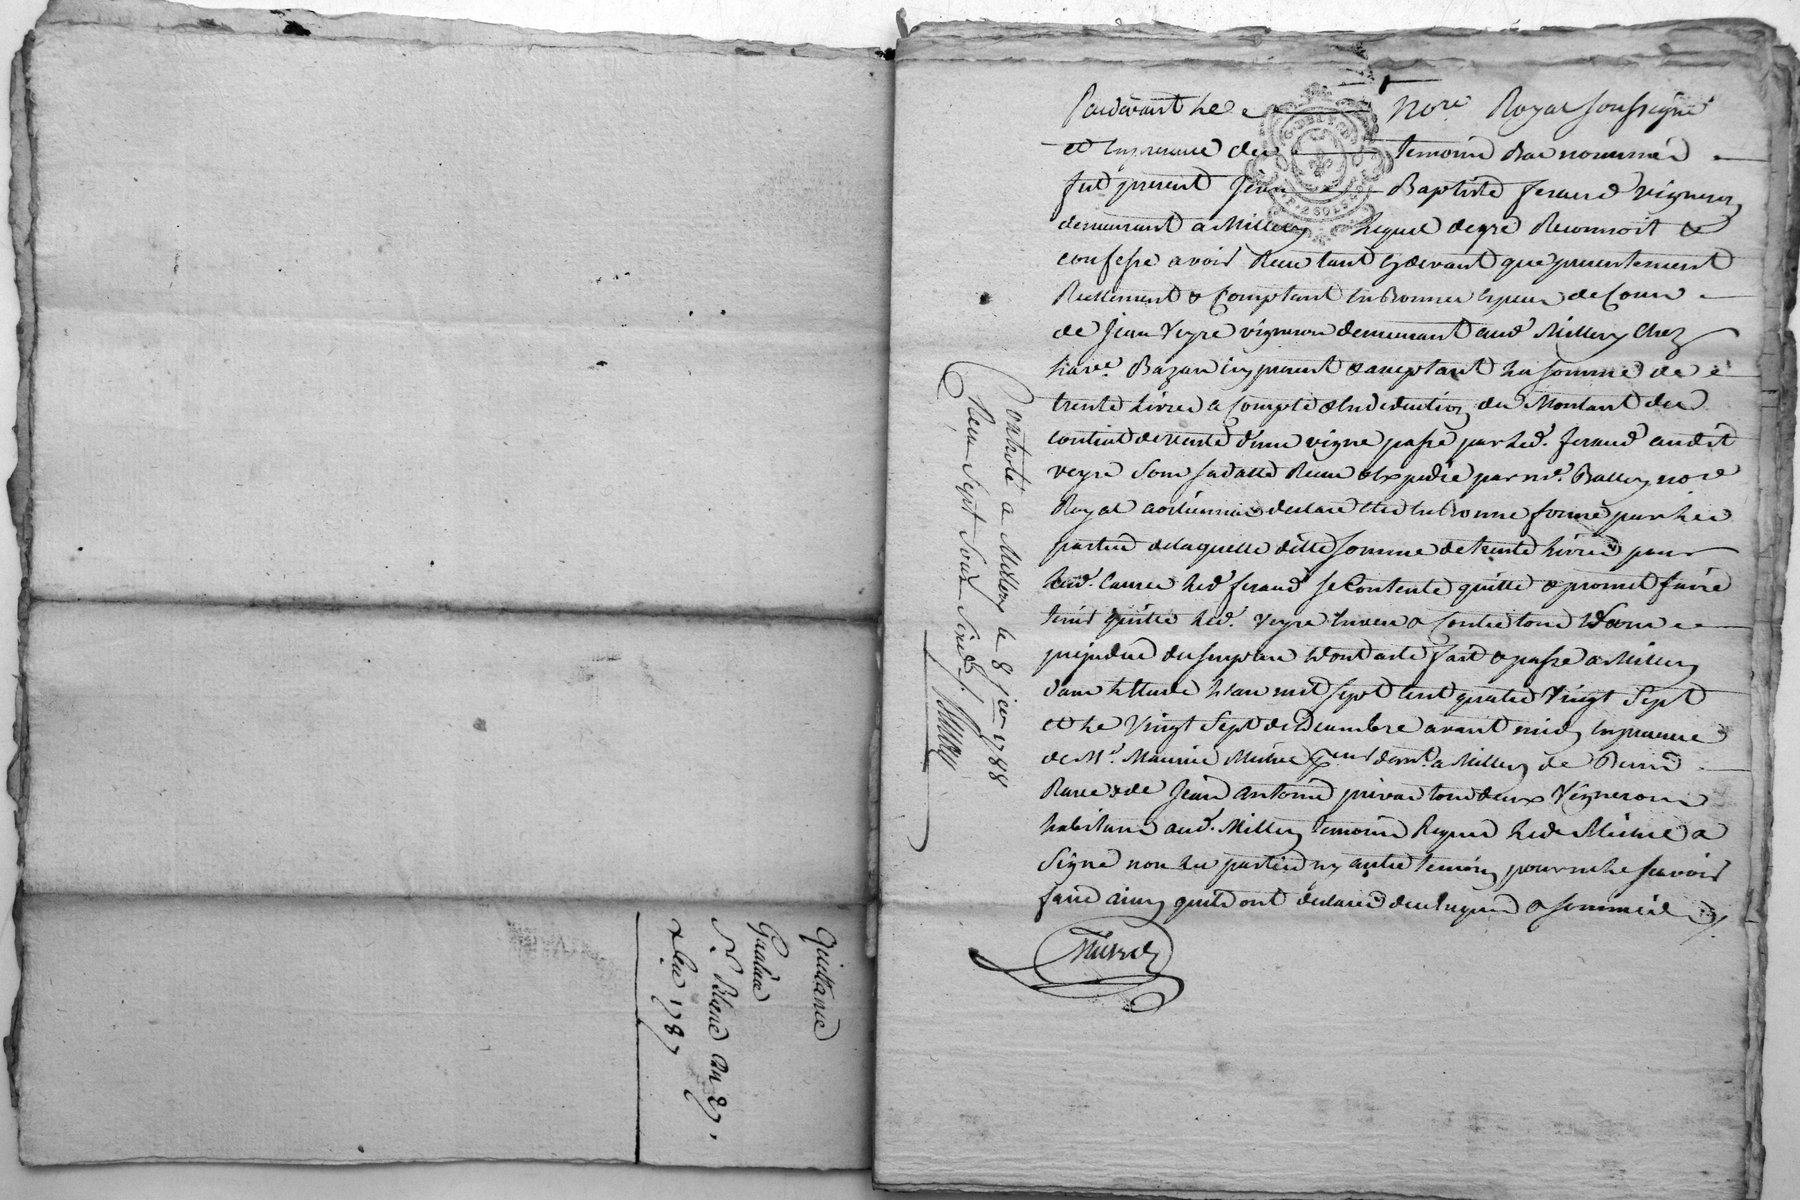 Quittance
Sr. Blanc
1787
Pardevant le Nore. Royal soussigné
et en presence des temoins bas nommés
fut present Jean Baptiste feraud vigneron
demeurant a Millery lequel de gré Reconnoit &
confesse avoir Receu tant cy devant que presentement
Reellement & Comptant en bonnes especes de Cours
de Jean Veyre vigneron demeurant aud. Millery chez
la ve. Bazan icy present & acceptant la somme de
trente livres a Compte & en deduction du Montant du
contrat de vente d'une vigne passé par led. feraud audit
veyre sous sa datte Receu & expedié par me. Ballery nore
Royal declaré etre en bonne forme par les
parties de laquelle ditte somme de trente livres pour
lesd. causes led. feraud se Contente quitte & promet faire
tenir quitte led. Veyre envers & Contre tous sans
prejudice du surplus dont acte fait & passé a Millery
dans l'etude l'an mil sept cent quatre Vingt Sept
et le Vingt Sept decembre avant midy en presence
de Mr. Maurice demt. a Millery de
& de Jean antoine privat tous deux Vignerons
habitans aud. Millery temoins Requis led. a
Signé non les parties ny autre temoin pour ne le sçavoir
faire ainsy qu'ils ont déclaré de ce enquis & sommés
Controlé a Millery le 8 jer 1788
Receu Sept Sous Six d.